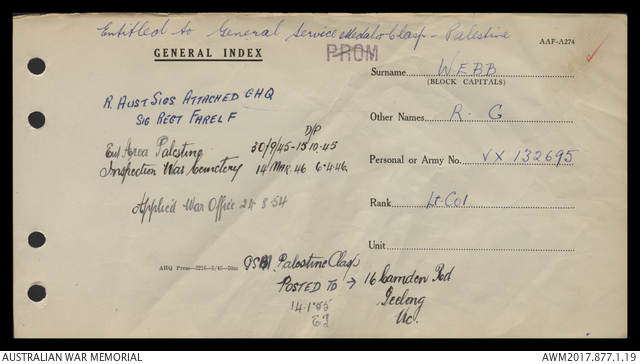 Entitled to General Service Medal & Clasp - Palestine
AAF-A274
PROM
GENERAL INDEX
Surname WEBB
(BLOCK CAPITALS)
R. AUST SIGS ATTACHED GHQ
SIG REGT FARELF
Other Names R. G
D/P
Area Palestine 30/9/45-15.10.45
Inspection War Cemetery 14 MAR.46 6.4.46.
Personal or Army No. VX 132695
Applied War Office 24.8.54
Rank Lt. Col
Unit
AHQ Press—3216—2/46—50m
Palestine Clasp
POSTED TO → 16 Camden Rd
Geelong
Vic.
14.1.55
AUSTRALIAN WAR MEMORIAL
AWM2017.877.1.19